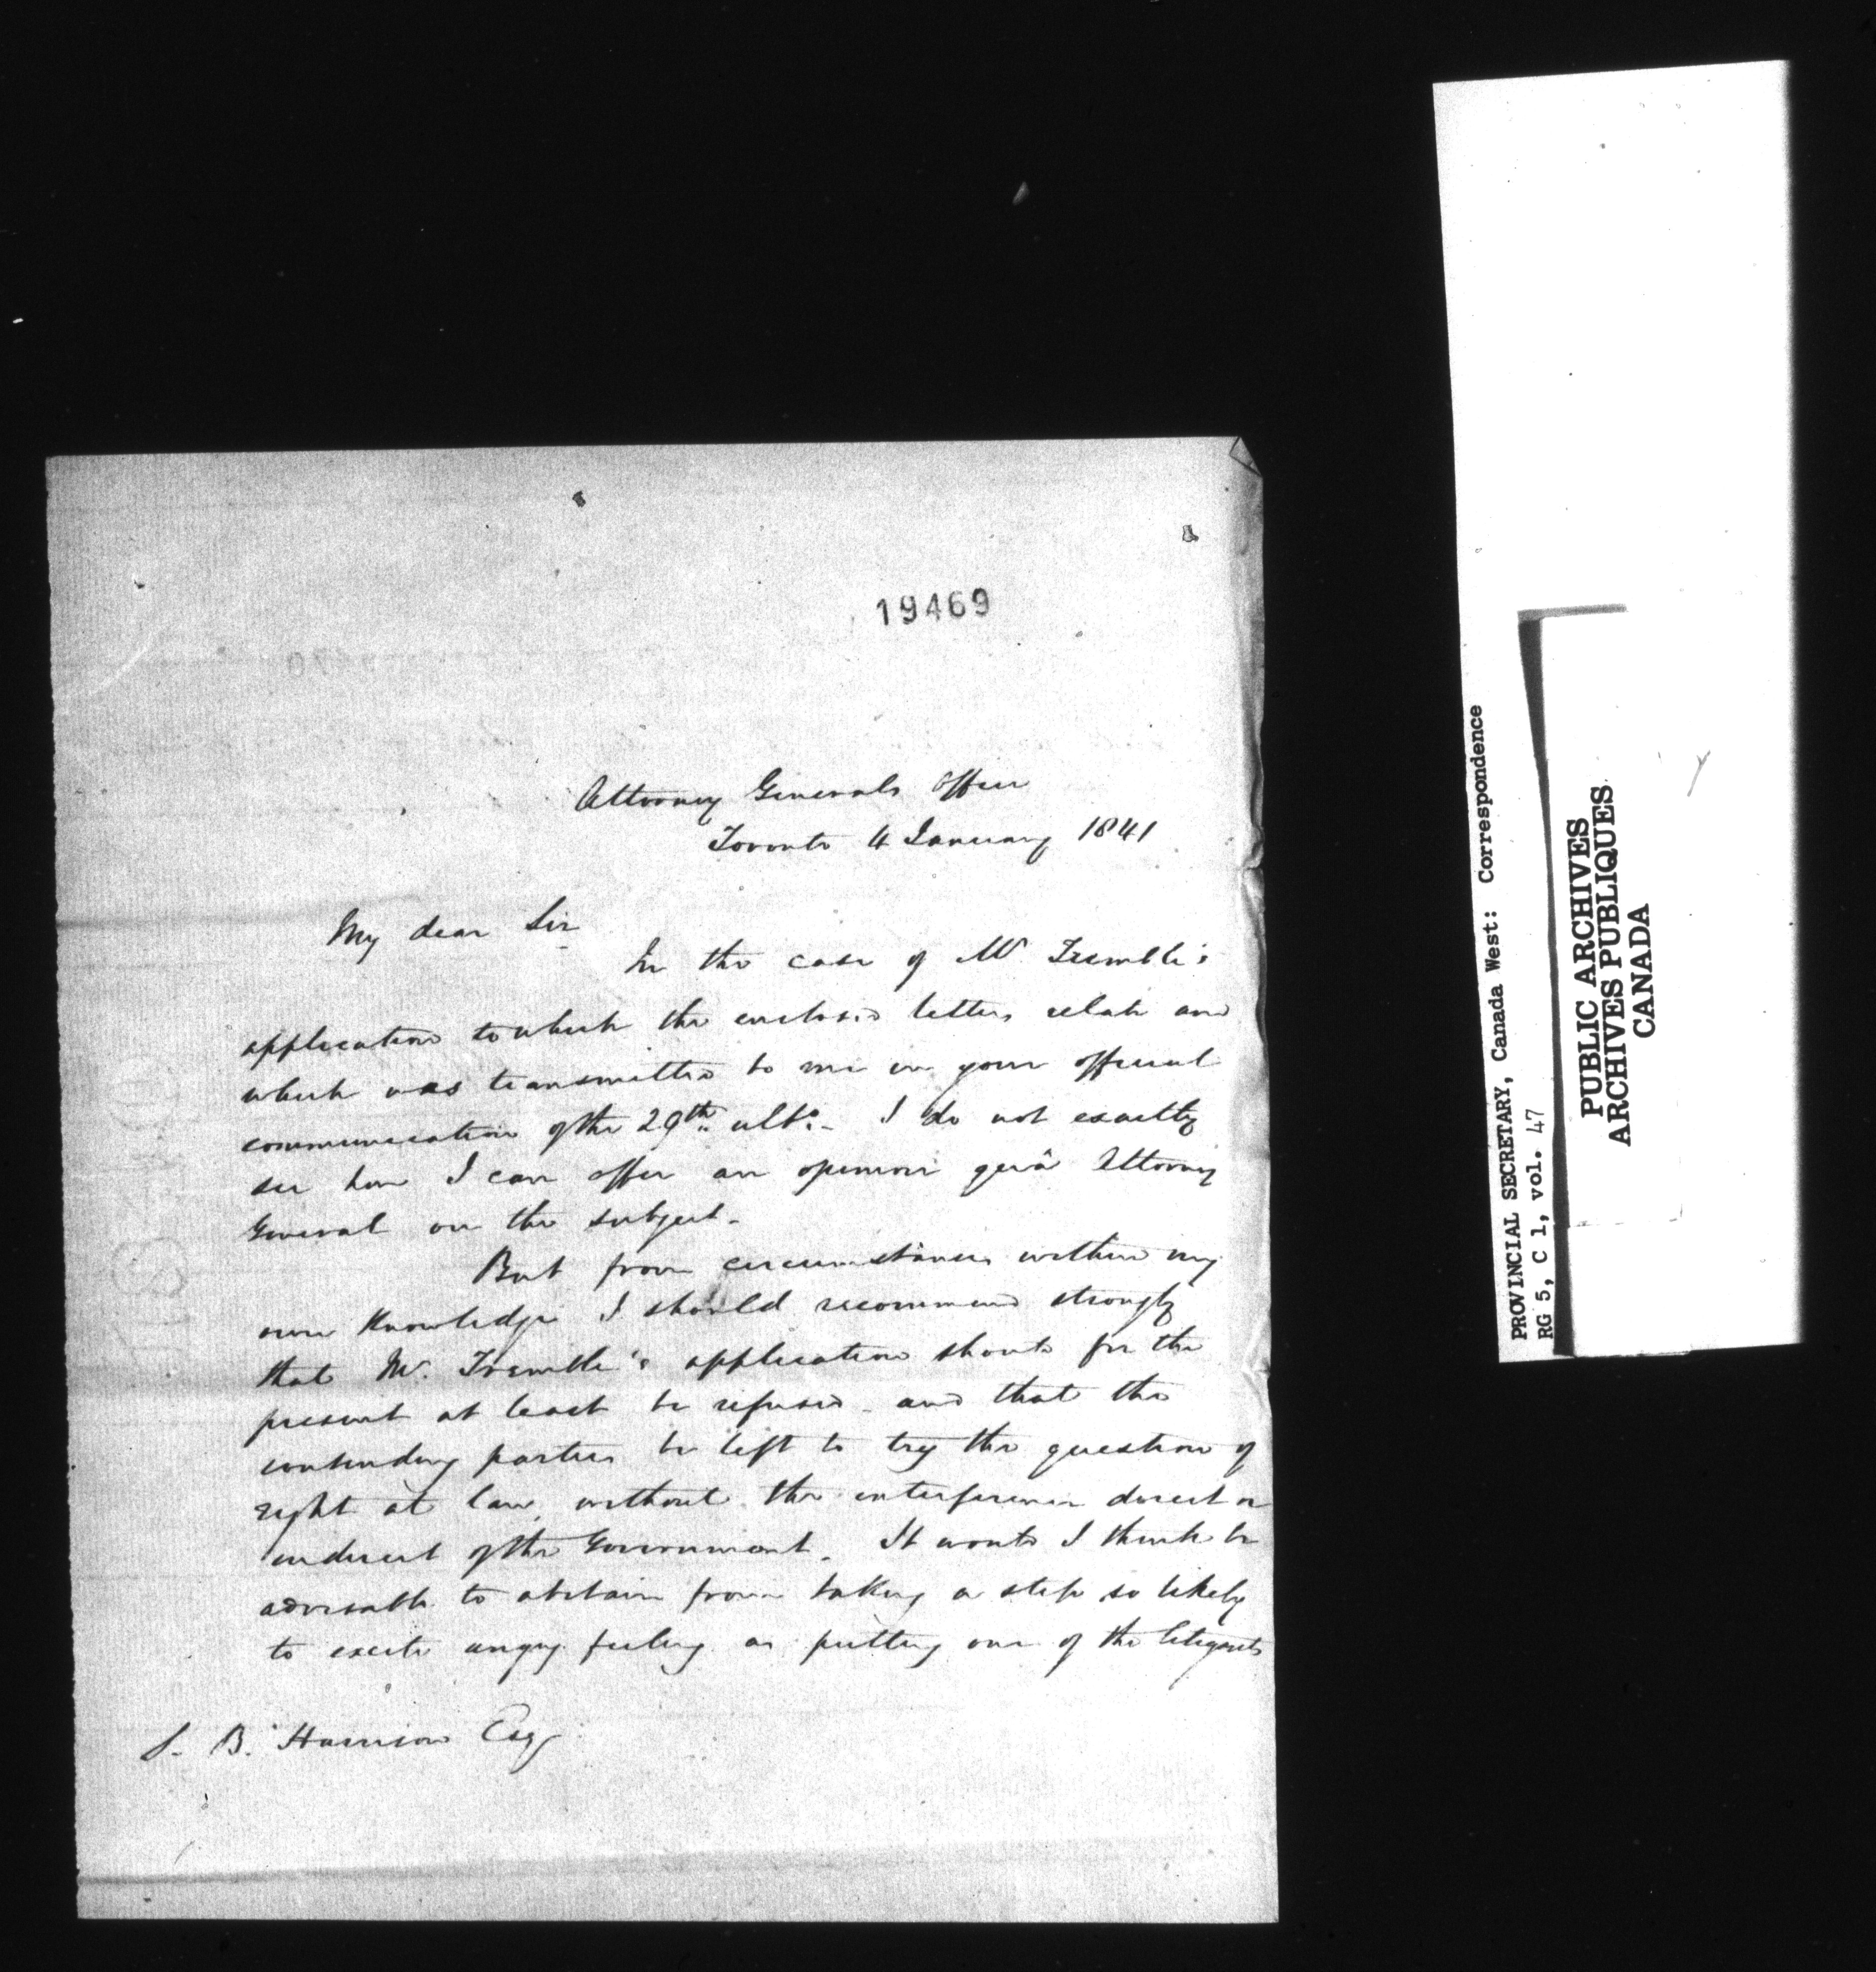 19469
Attorney Generals Office
Toronto 4 January 1841
My dear Sir
In the case of Mr Tremble's
application to which the enclosed letters relate and
which was transmitted to me in your official
communication of the 29th ulto. - I do not exactly
see how I can offer an opinion quâ Attorney
General on the subject -
But from circumstances within my
own Knowledge I should recommend strongly
that Mr. Tremble's application should for the
present at least be refused - and that the
contending parties be left to try the question of
right at law, without the interference direct or
indirect of the Government. It would I think be
advisable to abstain from taking a step so likely
to excite angry feeling as putting one of the litigants
S. B. Harrison Esq
PROVINCIAL SECRETARY, Canada West: Correspondence
RG 5, C 1, vol. 47
PUBLIC ARCHIVES
ARCHIVES PUBLIQUES
CANADA